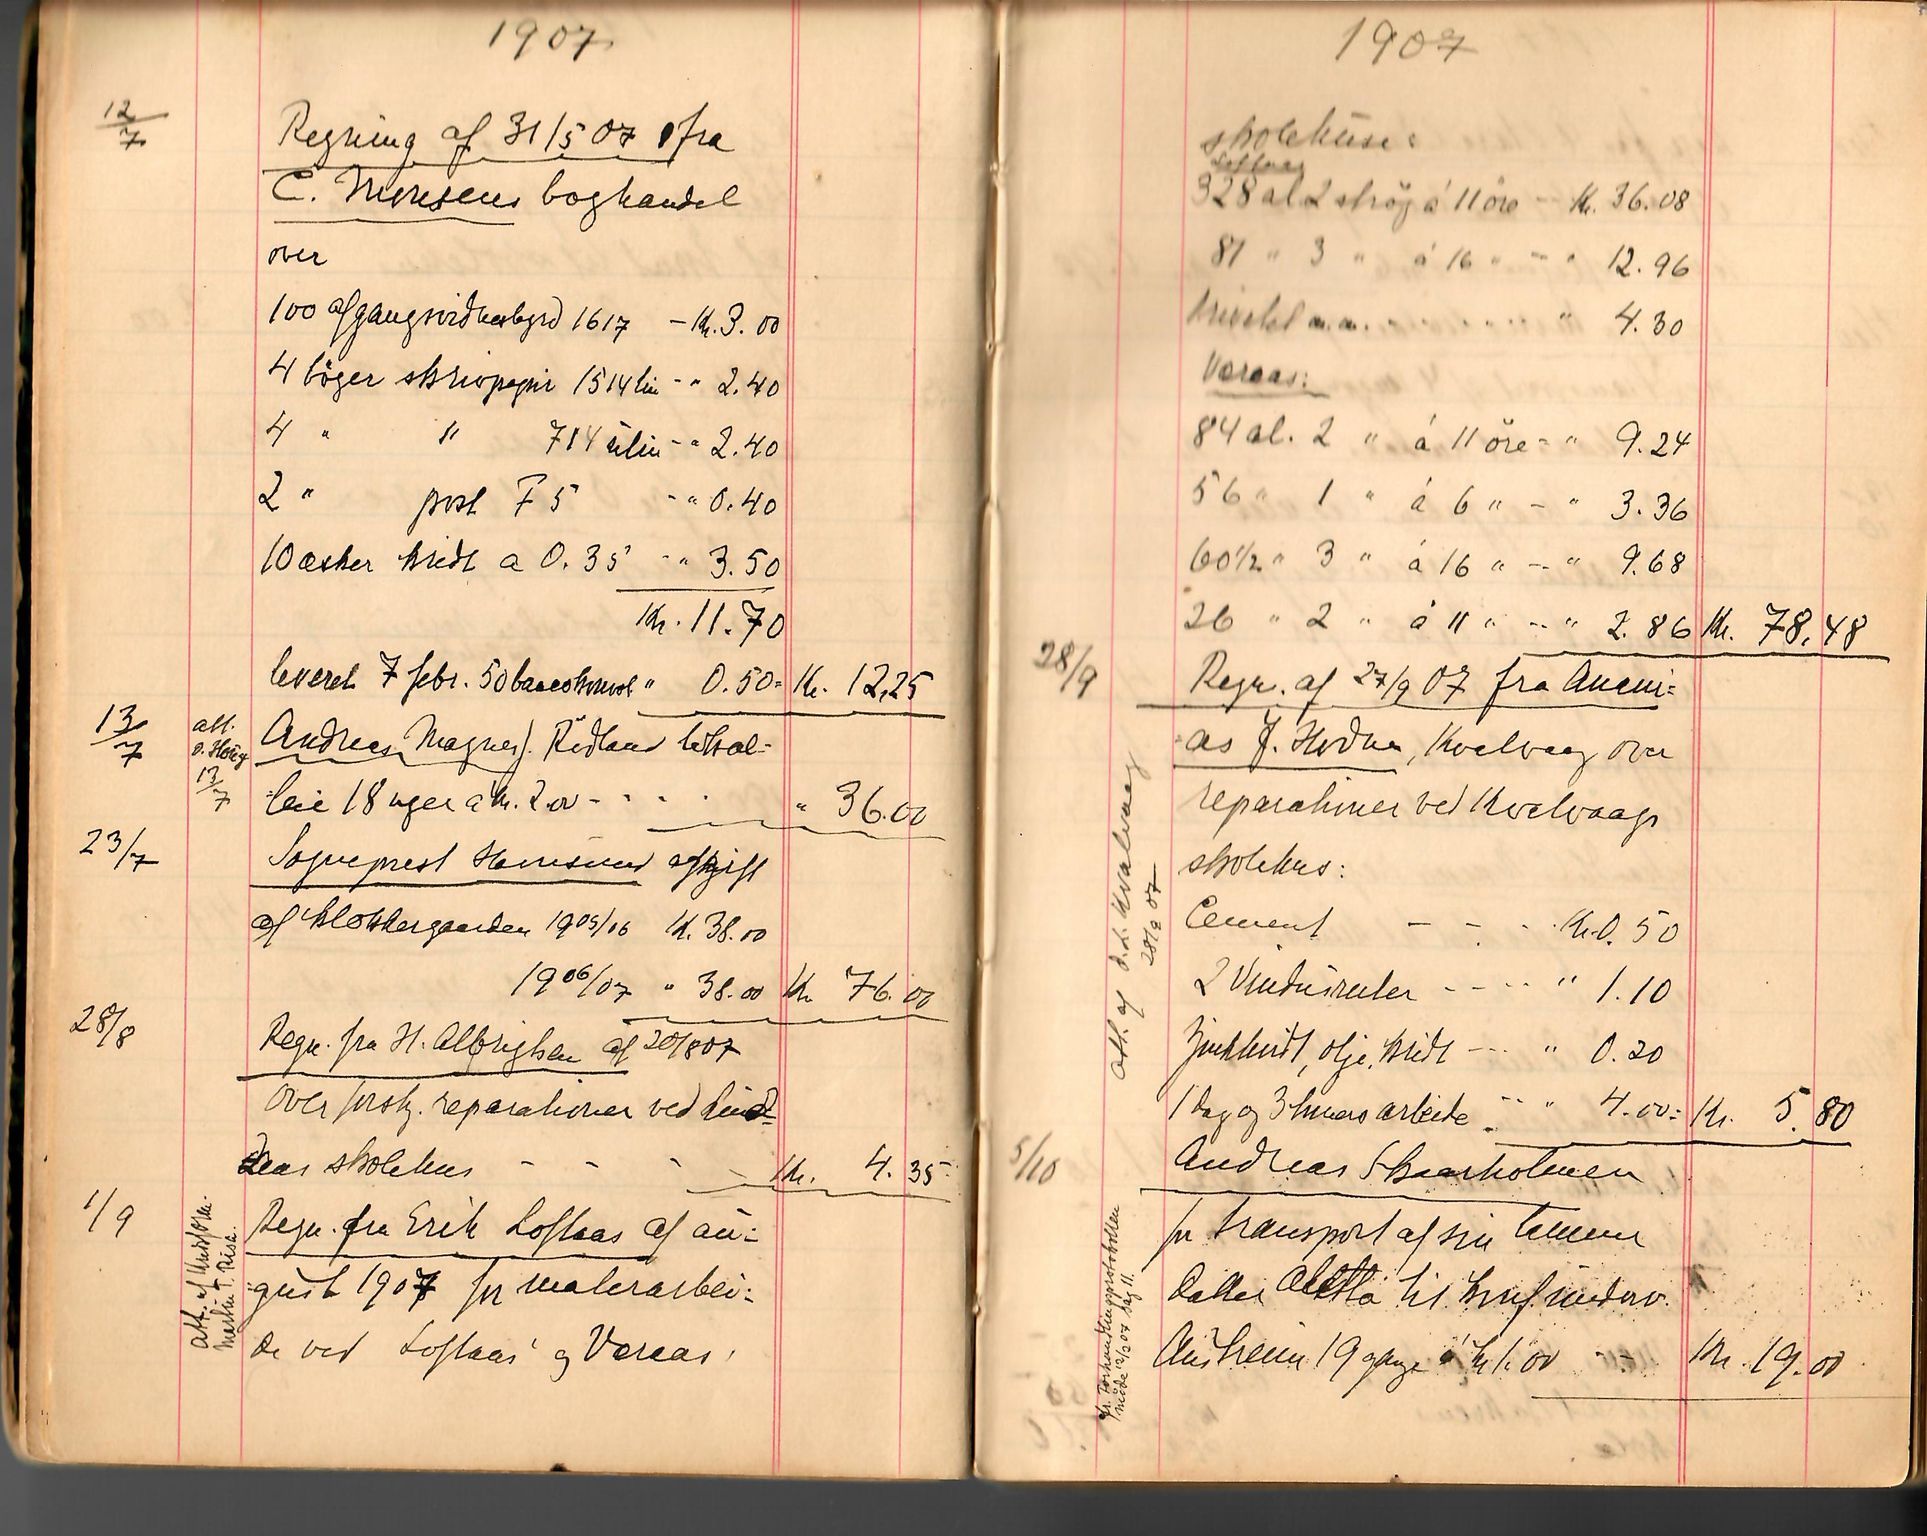 1907
12/7
Regning af 31/5 07 fra
C. Monsens boghandel
over
100 afgangsvidnesbyrd 1617 - Kr. 3.00
4 bøger skrivpapir 1514 lin - " 2.40
4 " " 714 ulin - " 2.40
2 " post F 5 - " 0.40
10 æsker kridt a 0.35 - " 3.50
Kr. 11.70
leveret 7 febr. 50 " 0.50 = Kr. 12,25
13/7
att.
O. Houg
13/7
Andreas Magnesj. Rödland lokal=
leie 18 uger a kr. 2.00 - - - - " 36.00
23/7
Sogneprest afgift
af klokkergaarden 1905/06 K. 38.00
1906/07 " 38.00 Kr 76.00
28/8
Regn. fra H. Albrigtsen af 20/8 07
over forskj. reparationer ved Lind=
aas skolehus - - - - Kr. 4.35
1/9
att. af
Regn. fra Erik Loftaas af au=
gust 1907 for malerarbei=
de ved Loftaas og Væraas,
1907
skolehuse:
Loftaas
328 al 2 strög á 11 öre - Kr. 36.08
81 " 3 " á 16 " - " 12.96
m.m. - - - - " 4.30
Væraas:
84 al. 2 " á 11 öre - " 9.24
56 " 1 " á 6 " - " 3.36
60 1/2 " 3 " á 16 " - " 9.68
26 " 2 " á 11 " - " 2.86 Kr. 78,48
28/9
Regn. af 27/9 07 fra Anani=
as J. Hodne, Kvalvaag over
reparationer ved Kvalvaags
skolehus:
att. af O. L. Kvalvaag
28/9 07
Cement - - - - Kr. 0.50
2 Vinduruter - - - - " 1.10
Zinkhvidt, olje, kridt - - - " 0.20
1 dag og 3 timers arbeide - - " 4.00 = Kr. 5.80
5/10
Andreas Skaarholmen
for transport af sin lamme
datter til underv.
Austreim 19 gange á kr 1.00 - - Kr. 19.00
fr. Forhandlingsprotokollen
møde 12/2 07 sag 11.